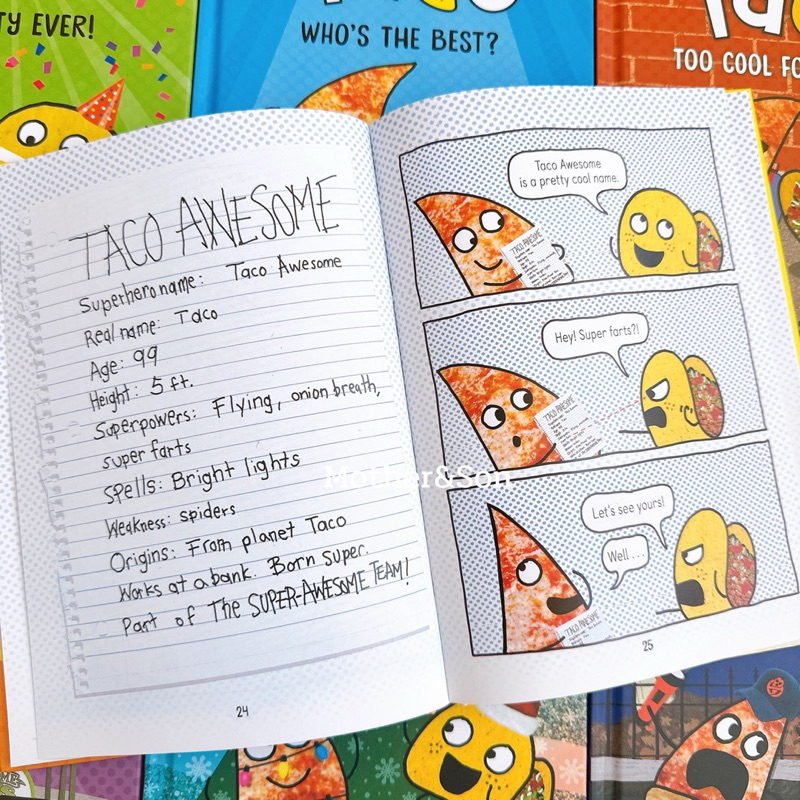 TY EVER!
WHO'S THE BEST?
TOO COOL FO
TACO AWESOME
Superhero name: Taco Awesome
Real name: Taco
Age: 99
Height: 5 ft.
Superpowers: Flying, onion breath,
super farts
Spells: Bright lights
Weakness: spiders
Origins: From planet Taco
Works at a bank. Born super.
Part of THE SUPER-AWESOME TEAM!
24
Taco Awesome
is a pretty cool name.
TACO AWESOME
Hey! Super farts?!
TACO AWESOME
Let's see yours!
Well...
TACO AWESOME
25
Mother&Son